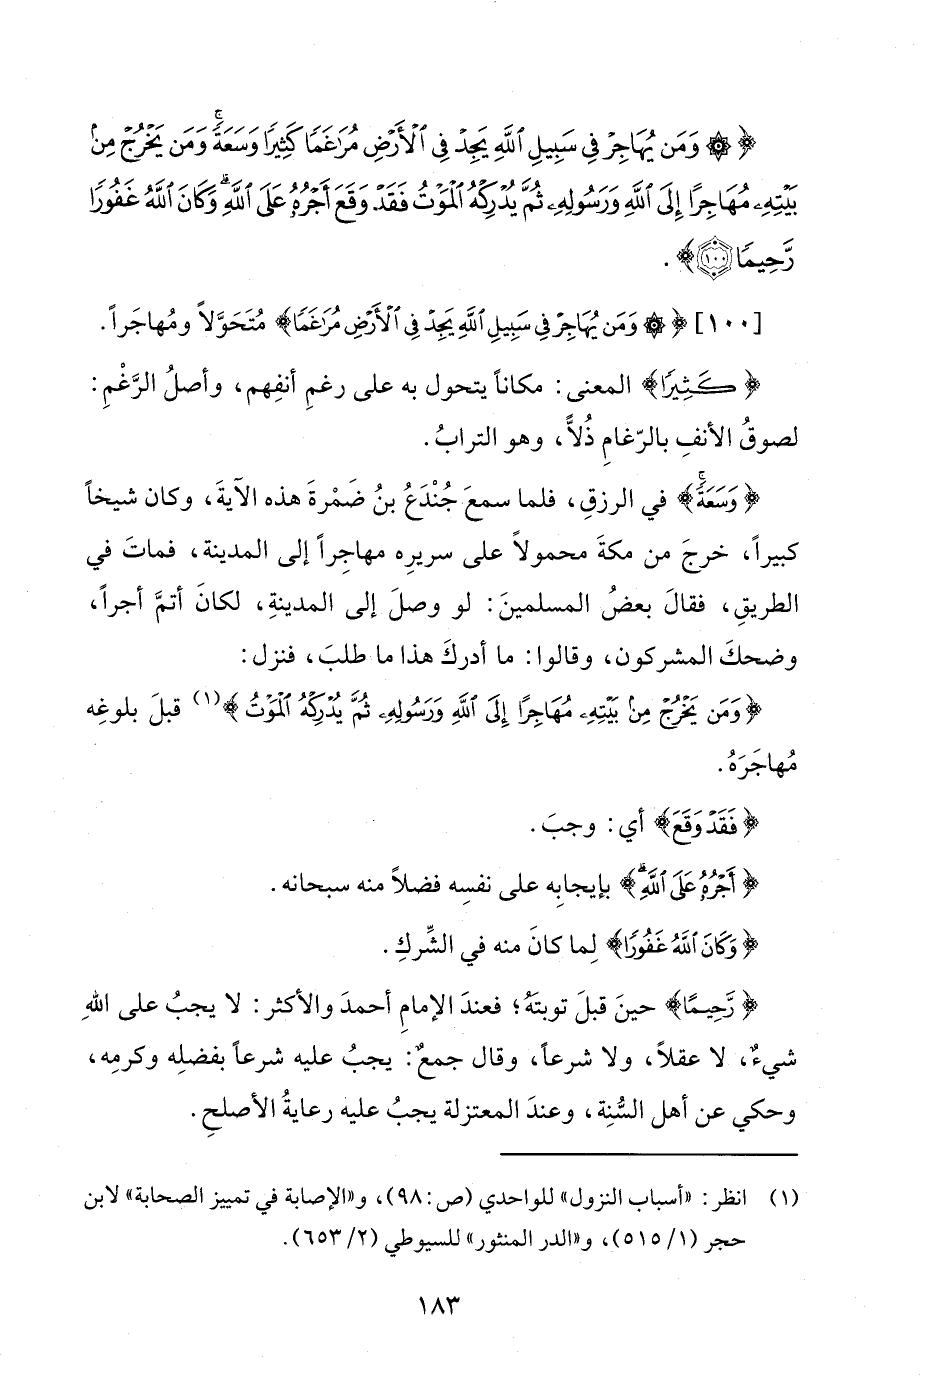 ﴿ ۞ وَمَن يُهَاجِرْ فِي سَبِيلِ ٱللَّهِ يَجِدْ فِي ٱلْأَرْضِ مُرَٰغَمًا كَثِيرًا وَسَعَةً ۚ وَمَن يَخْرُجْ مِنۢ
بَيْتِهِۦ مُهَاجِرًا إِلَى ٱللَّهِ وَرَسُولِهِۦ ثُمَّ يُدْرِكْهُ ٱلْمَوْتُ فَقَدْ وَقَعَ أَجْرُهُۥ عَلَى ٱللَّهِ ۗ وَكَانَ ٱللَّهُ غَفُورًا
رَّحِيمًا ١٠٠ ﴾ .
[١٠٠] ﴿ ۞ وَمَن يُهَاجِرْ فِي سَبِيلِ ٱللَّهِ يَجِدْ فِي ٱلْأَرْضِ مُرَٰغَمًا ﴾ مُتَحَوَّلاً ومُهاجَراً.
﴿ كَثِيرًا ﴾ المعنى: مكاناً يتحول به على رغمِ أنفِهم، وأصلُ الرَّغْمِ:
لصوقُ الأنفِ بالرّغامِ ذُلاًّ، وهو الترابُ.
﴿ وَسَعَةً ۚ ﴾ في الرزقِ، فلما سمعَ جُنْدَعُ بنُ ضَمْرةَ هذه الآيةَ، وكان شيخاً
كبيراً، خرجَ من مكةَ محمولاً على سريرِه مهاجِراً إلى المدينة، فماتَ في
الطريقِ، فقالَ بعضُ المسلمينَ: لو وصلَ إلى المدينةِ، لكانَ أتمَّ أجراً،
وضحكَ المشركون، وقالوا: ما أدركَ هذا ما طلبَ، فنزل:
﴿ وَمَن يَخْرُجْ مِنۢ بَيْتِهِۦ مُهَاجِرًا إِلَى ٱللَّهِ وَرَسُولِهِۦ ثُمَّ يُدْرِكْهُ ٱلْمَوْتُ ﴾(١) قبلَ بلوغِه
مُهاجَرَهُ.
﴿ فَقَدْ وَقَعَ ﴾ أي: وجبَ.
﴿ أَجْرُهُۥ عَلَى ٱللَّهِ ۗ ﴾ بإيجابِه على نفسِه فضلاً منه سبحانه.
﴿ وَكَانَ ٱللَّهُ غَفُورًا ﴾ لِما كانَ منه في الشِّركِ.
﴿ رَّحِيمًا ﴾ حينَ قبلَ توبتَهُ؛ فعندَ الإمامِ أحمدَ والأكثر: لا يجبُ على اللهِ
شيءٌ، لا عقلاً، ولا شرعاً، وقال جمعٌ: يجبُ عليه شرعاً بفضلِه وكرمِه،
وحكي عن أهل السُّنة، وعندَ المعتزلة يجبُ عليه رعايةُ الأصلحِ.
(١) انظر: «أسباب النزول» للواحدي (ص: ٩٨)، و«الإصابة في تمييز الصحابة» لابن
حجر (١/ ٥١٥)، و«الدر المنثور» للسيوطي (٢/ ٦٥٣).
١٨٣